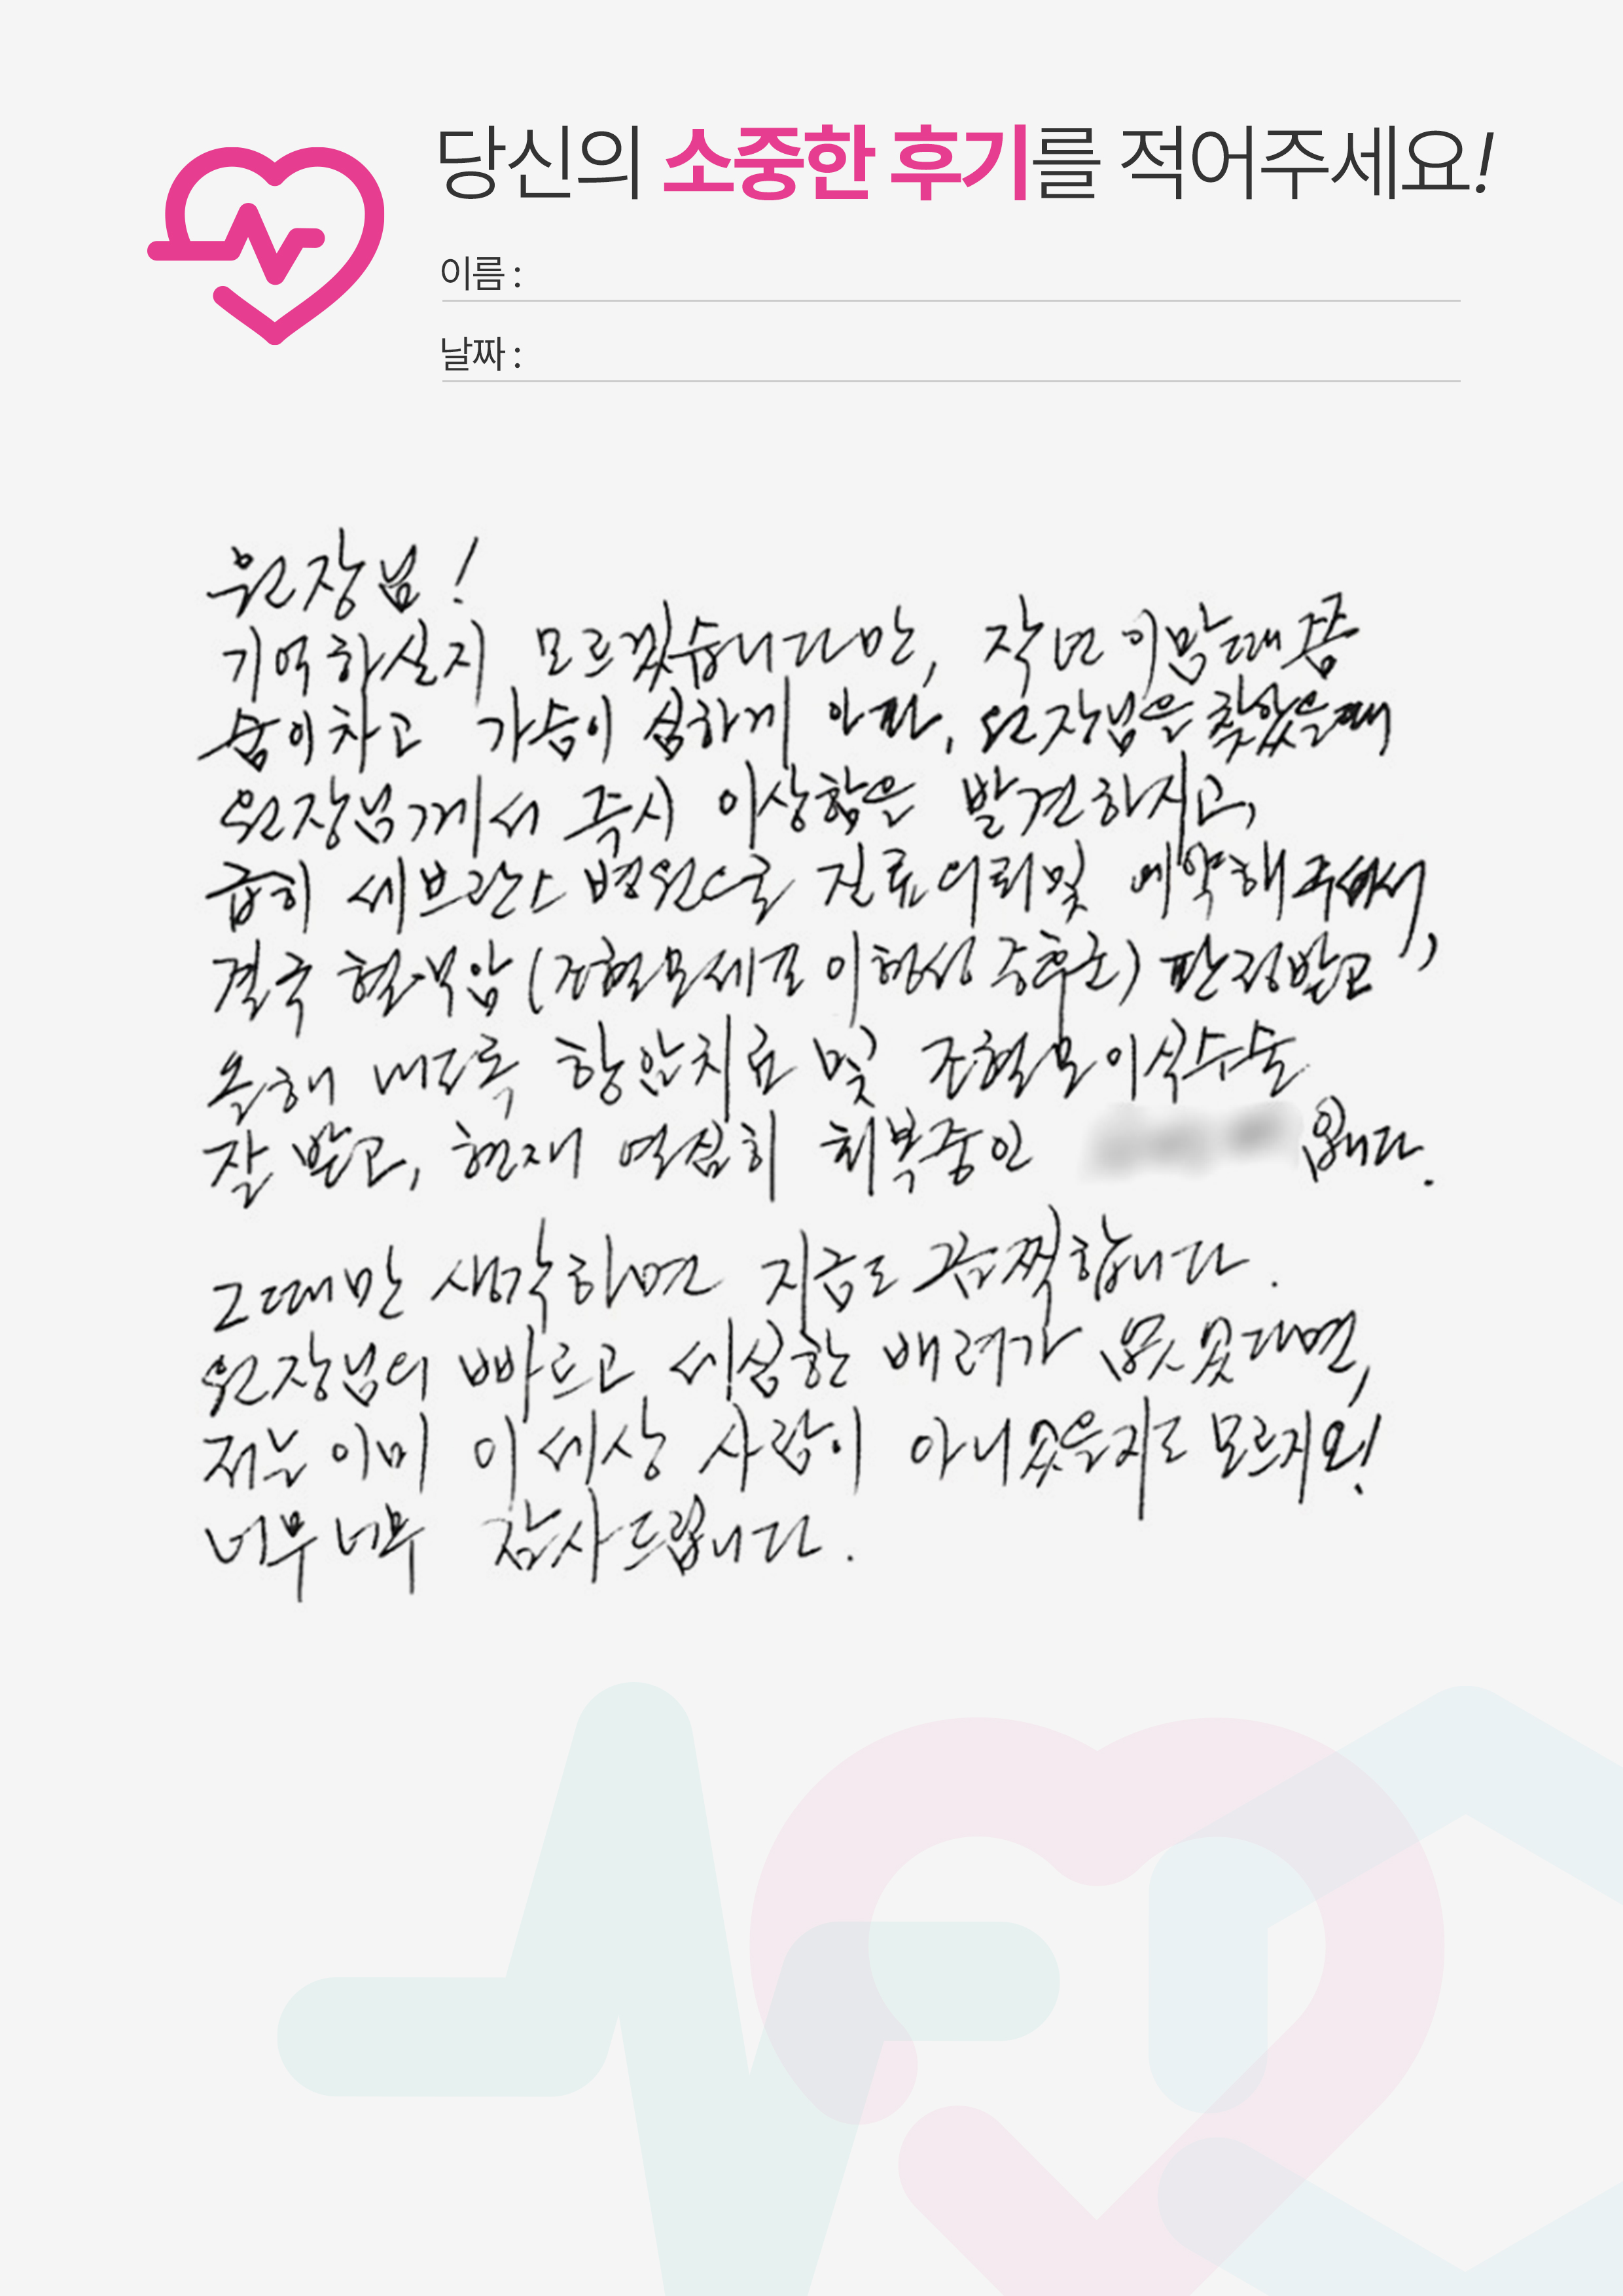 당신의 소중한 후기를 적어주세요!
이름 :
날짜 :
원장님!
기억하실지 모르겠습니다만, 작년 이맘때쯤
숨이차고 가슴이 심하게 아파, 원장님을 찾았을때
원장님께서 즉시 이상함을 발견하시고,
급히 세브란스 병원으로 진료의뢰및 예약해 주셔서,
결국 혈액암 (조혈모세포 이형성 증후군) 판정받고
올해 내도록 항암치료 및 조혈모이식수술
잘 받고, 현재 열심히 회복중인 입니다.
그때만 생각하면 지금도 끔찍합니다.
원장님의 빠르고 세심한 배려가 없었다면,
저는 이미 이 세상 사람이 아니었을지도 모르지요!
너무너무 감사드립니다.